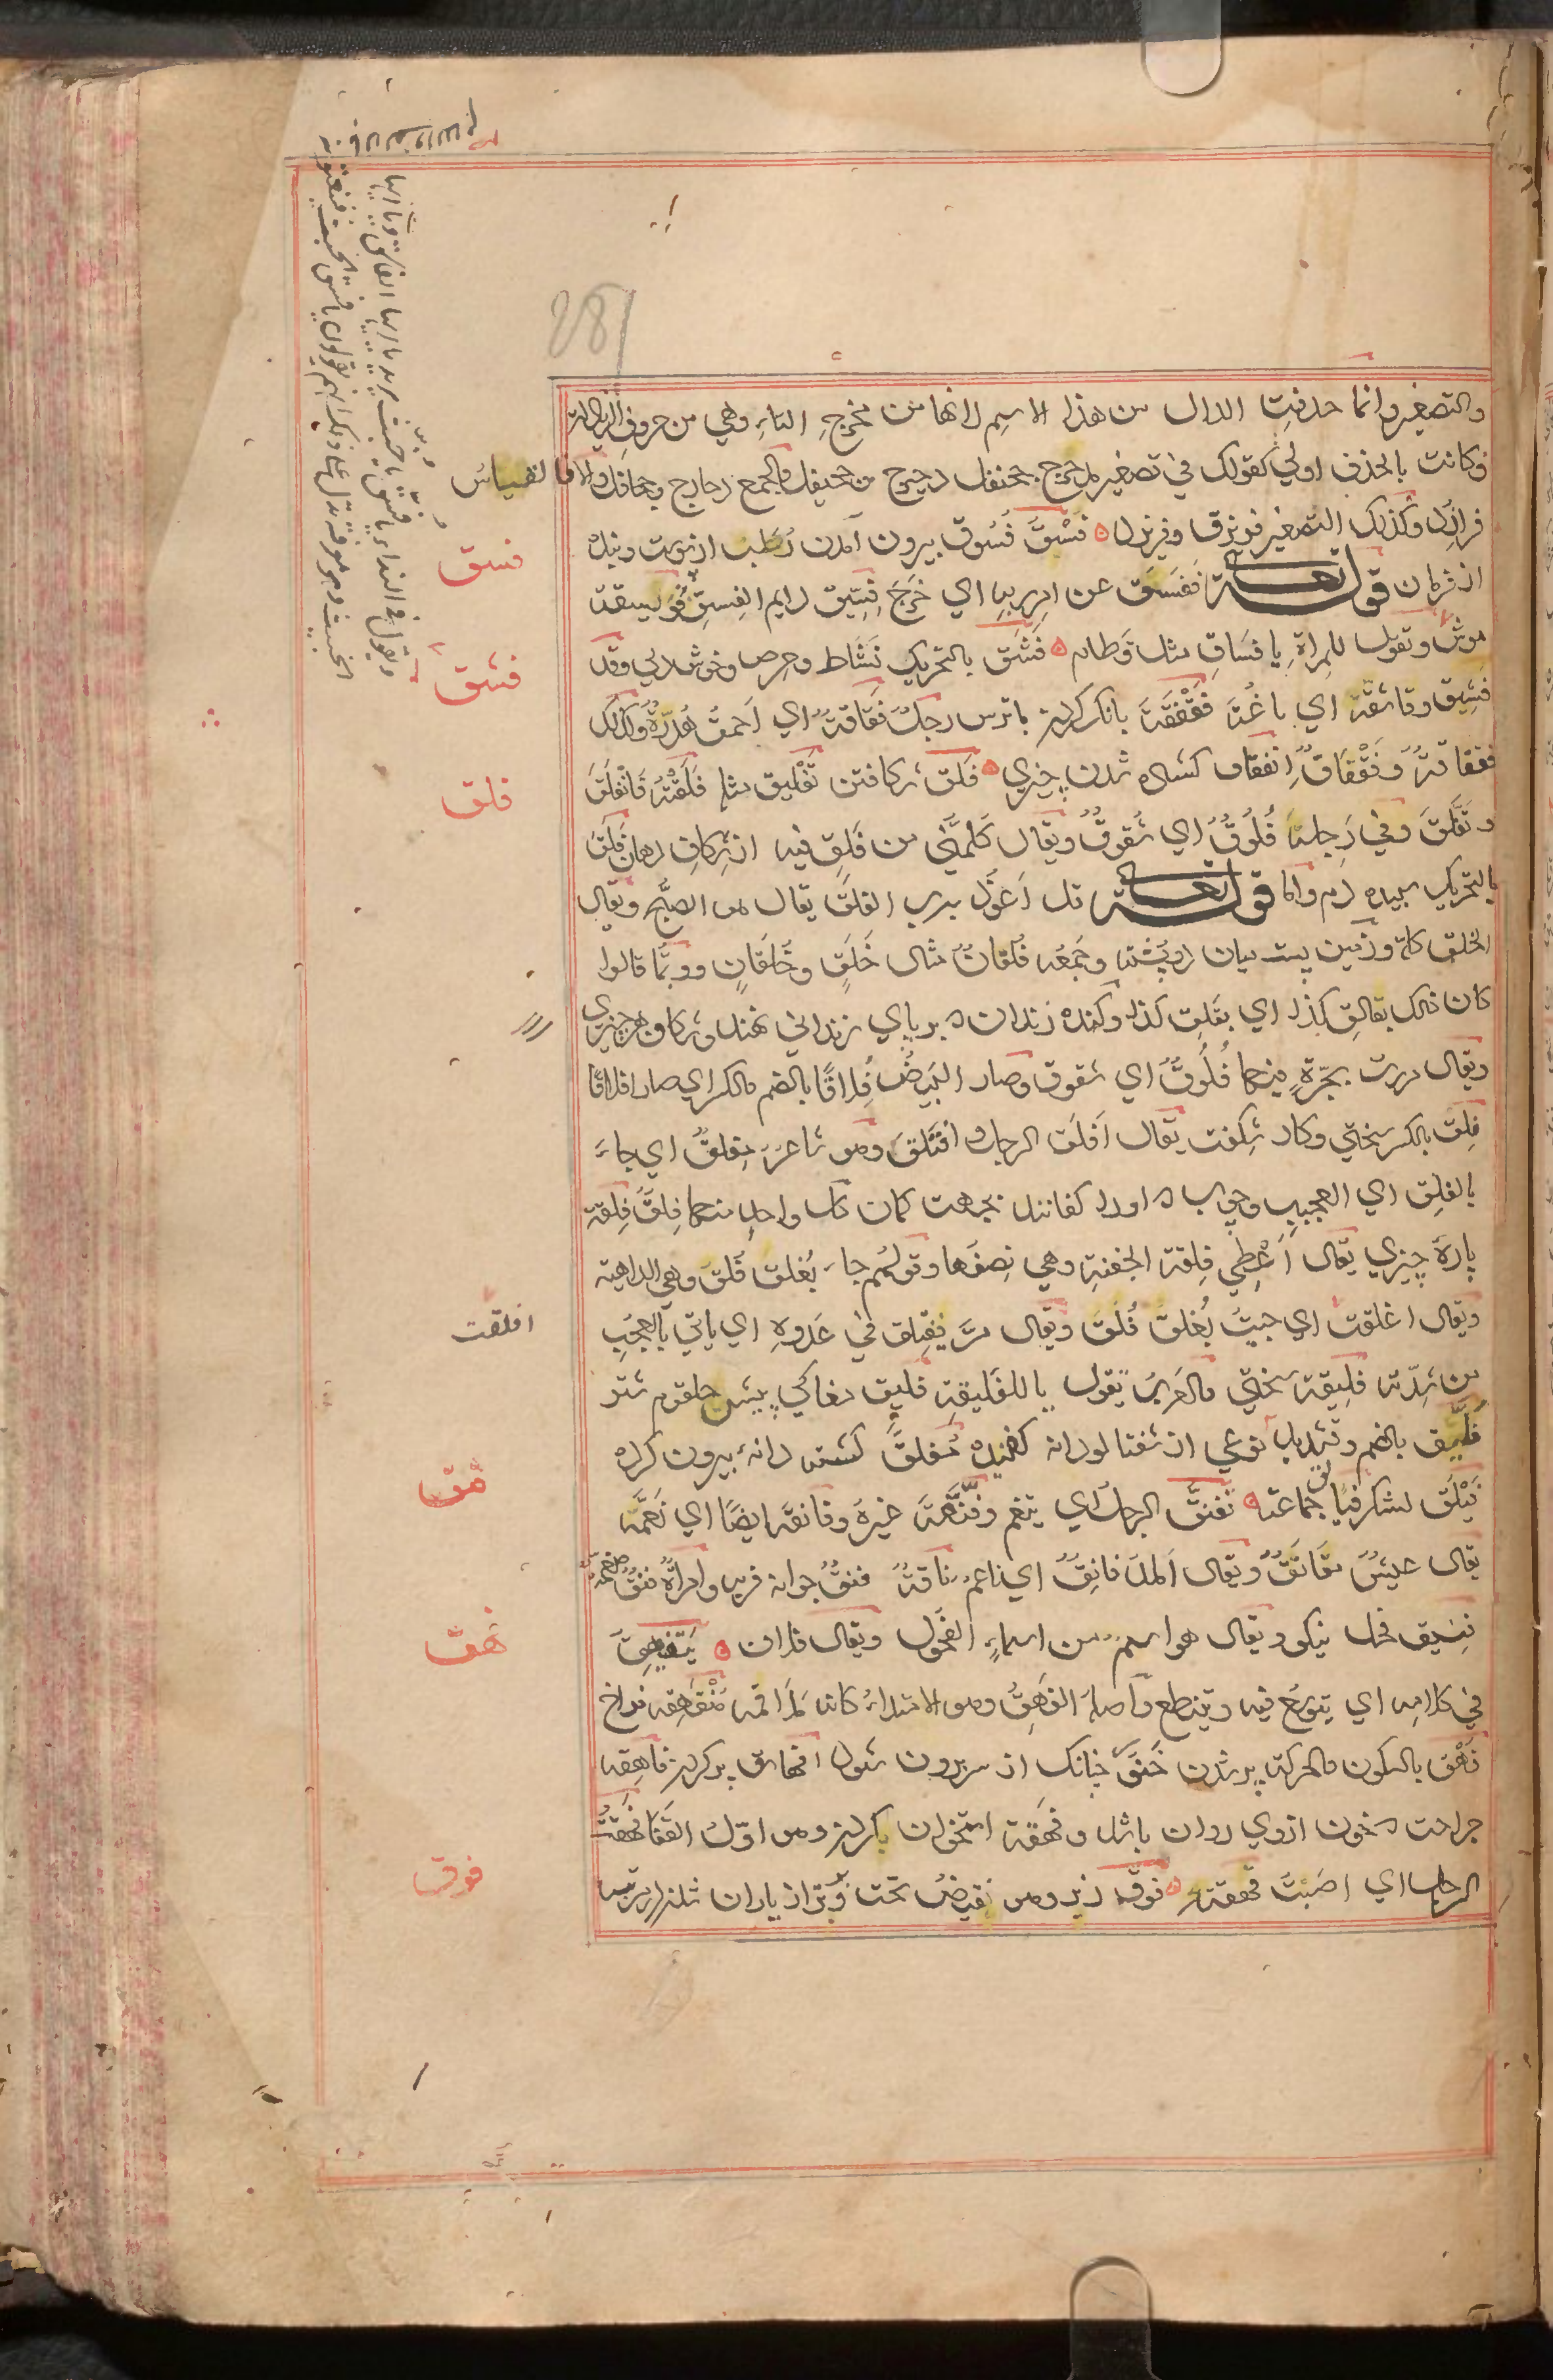 والتصغير وانما حذفت الدال من هذا الاسم لانها من مخرج التاء وهي من حروف الزيادة
فكانت بالحذف اولي كقولك في تصغير مدحرج جحنفل دحيرج و جحيفل والجمع دحارج وجحافل والا فالقياس
فرازد وكذلك التصغير فريزق وفريزد فِسْق فُسُوق بيرون آمدن رُطَب از پوست وبنده
از فرمان قوله تعالى فَفَسَقَ عن امر ربه اي خَرَجَ فِسِّيق دايم الفِسق فُوَيسقة
موش وتقول للمراة يا فَسَاقِ مثل قَطامِ فَشَق بالتحريك نَشاط وحرص وخوش دلي وقد
فَشِق وفاشقه اي باغته فَقْفَقَة بانك كردن با ترس رجل فَقَاقة اي احمق هُذَرَة وكذلك
فقفاقة وفَقْفَاق انفقاق كشاده شدن چيزي فَلق شكافتن تَفْليق مثله فَلَقْتُه فَانْفَلَقَ
وتَفَلَّقَ وفي رِجله فُلُوق اي شُقوق ويقال كَلّمني من فَلق فيه از شكاف دهان فَلَق
بالتحريك سپيده دم واما قوله تعالى قل اَعوذ برب الفلق يقال هو الصبح ويقال
الخلق كله وزمين پست ميان دو پشته وجمعه فُلقان مثال خَلَق وخُلقان وربما قالوا
كان ذلك بفالق كذا اي بفَلَق كذا وكنده زندان كه بر پاي زنداني نهند وشكاف هر چيزي
ويقال مررت بحَرّة فيها فُلُوق اي شقوق وصار البَيض فُلاقًا بالضم والكسر اي صار افلاقا
فِلق بالكسر سختي وكار شكفت يقال اَفلَق الرجل وافتَلَق وهو شاعر مفلق اي جاء
بالفِلق اي العجيب وچوب كه او را كفانند بجهت كمان كل واحد منهما فِلق فِلقة
پارهٔ چيزي يقال اَعْطِني فِلقة الجَفنة وهي نِصفها وقولهم جاء بعُلَق فُلَق وهي الداهية
ويقال افلقت اي جيت بعُلَق فُلَق ويقال مرّ يفتلق في عَدوه اي ياتي بالعجب
من شدّته فَليقة سختي والعرب تقول يا للفليقة فليق مغاكي پيش حلقوم شتر
فُلَّيق بالضم وتشديد نوعي از شفتالو دانه كفيده مُفلّق كشته دانه بيرون كرده
فَيْلَق لشكر فيالق جماعته تَفَنُّق الرجل اي تنعم وفَنّقه غيره وفانقه ايضا اي نَعَّمَه
يقال عيش مُفانَق ويقال المال فانق اي ناعم ناقة فنق جوانه فربه وامراة فنق منعّمة
فَنيق فحل نيكو ويقال هو اسم من اسماء الفحول ويقال فلان يَتَفَيهَق
في كلامه اي يتوسّع فيه ويتنطع واصله الفَهَق وهو الامتلاء كانه مَلأ فمه مُنْفَهِقه فراخ
فَهْق بالسكون والحركة پر شدن خنَور چنانك از سر بيرون شود افهاق پر كردن فاهقه
جراحت كه خون ازوي روان باشد وفَهْقَة استخوان بن كردن وهو اوّل القفا فَهَقْتُ
الرجل اي اصبت فَهقته فوق زبر وهو نقيض تحت وبرتر از ياران شدن در مرتبه
فسق
فشق
فلق
افلقت
فنق
فهق
فوق
ويقول في النداء يا فُسَقُ يا خبيث يريد يا ايها الفاسق ويا ايها
الخبيث وهو معرفة تدل علي ذلك انهم يقولون يا فسق الخبيث فينعتونه
بالالف واللام
281